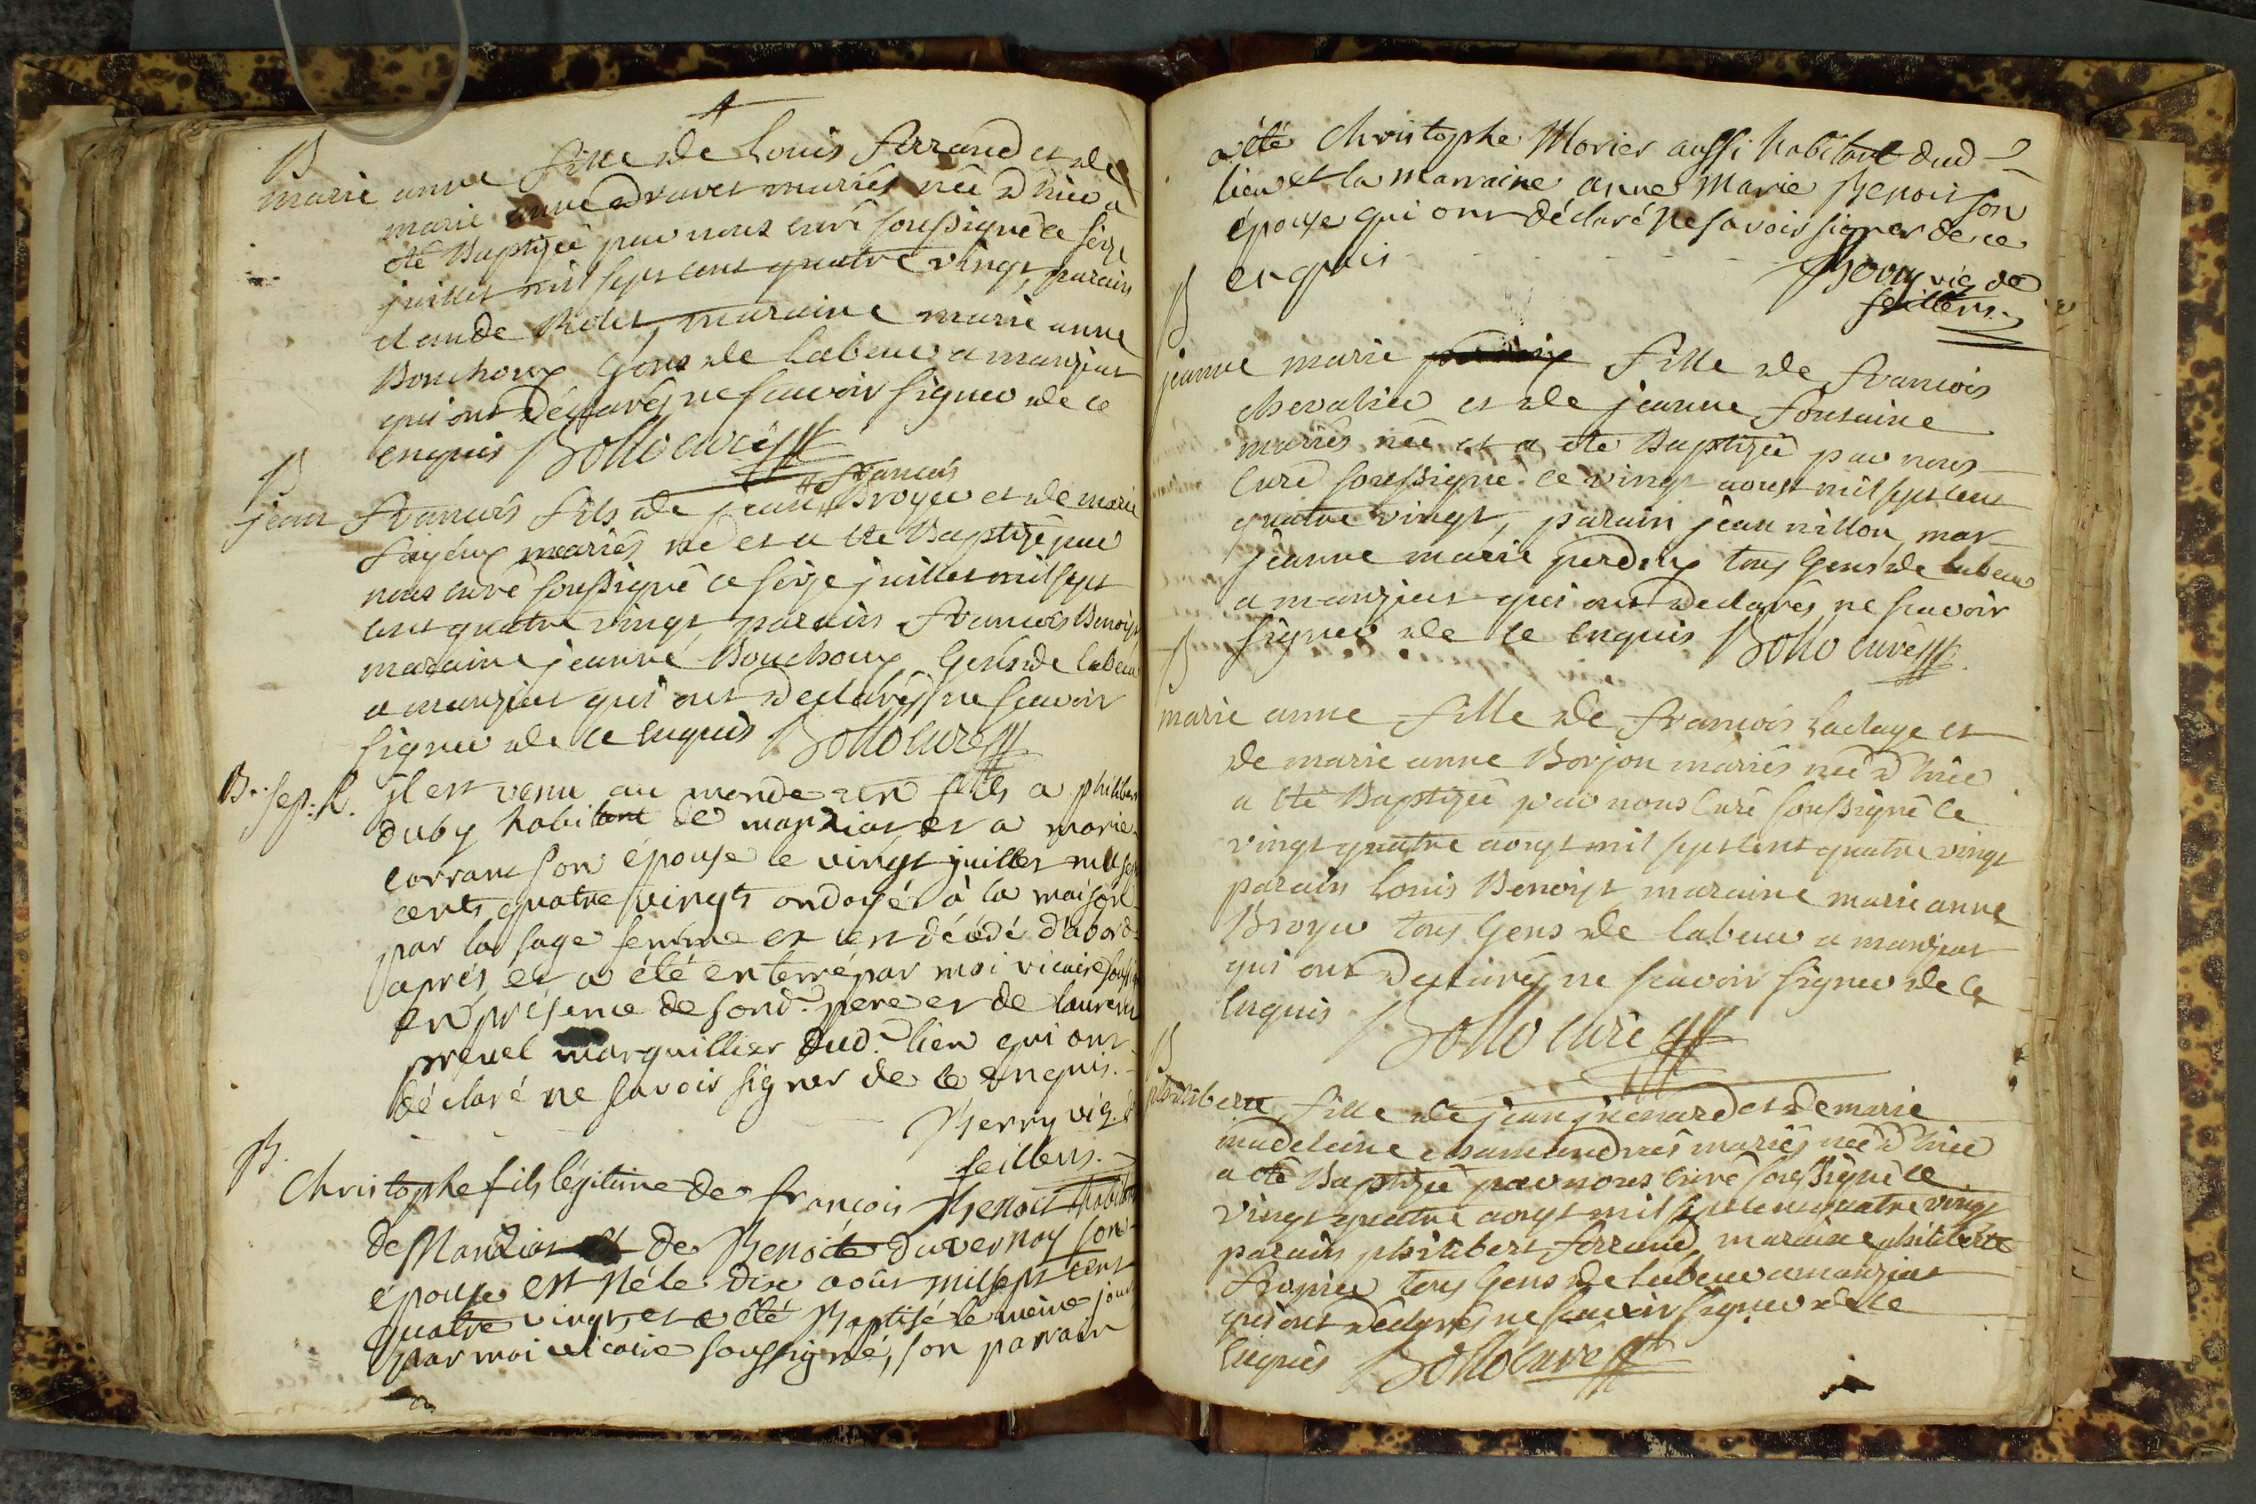 4
B
marie anne fille de Louis ferrand et de
marie anne mariés née d'hier a
été Baptizée par nous curé soussigné ce seize
juillet mil sept cent quatre vingt, parain
claude maraine marie anne
Bouchoux Gens de labeur a manziat
qui ont déclarés ne scavoir signer de ce
enquis Bollo curé
B
jean francois fils de jean francois Broyer et de marie
mariés né et a été Baptizé par
nous curé soussigné ce seize juillet mil sept
cent quatre vingt parain francois Benoist
maraine jeanne Bouchoux Gens de labeur
a manziat qui ont declarés ne scavoir
signer de ce enquis Bollo curé
B. Sep. R. il est venu au monde un fils a philibert
duby habitant de manziat et a marie
corrant son épouse le vingt juillet mil sept
cents quatre vingts ondoyé à la maison
par la sage femme et est décédé d'abord
après et a été enterré par moi vicaire soussig
en présence de sond. pere et de laurent
prevel marguillier dud. lieu qui ont
déclaré ne savoir signer de ce enquis.
Berry vic. de
feillens.
B.
Christophe fils légitime de françois Benoit habitant
de Manziat et de Benoite duvernay son
épouse est né le dix août mil sept cent
quatre vingt, et a été Baptisé le même jour
par moi vicaire soussigné, son parrain
a été Christophe Morier aussi habitant dud
lieu et la marraine anne Marie Benoit son
épouse qui ont déclaré ne savoir signer de ce
enquis
Berry vic de
feillens.
B
jeanne marie fille de francois
chevalier et de jeanne fontaine
mariés née et a été Baptizée par nous
Curé soussigné ce vingt aoust mil sept cent
quatre vingt, parain jean nillon, mar
jeanne marie perdrix tous Gens de labeur
a manziat qui ont declarés ne scavoir
signer de ce enquis Bollo curé
B
marie anne fille de francois Laclaye et
de marie anne Borjon mariés née d'hier
a été Baptizée par nous Curé soussigné ce
vingt quatre aoust mil sept cent quatre vingt
parain Louis Benoist maraine marie anne
Broyer tous Gens de labeur a manziat
qui ont declarés ne scavoir signer de ce
Enquis Bollo curé
B
philiberte fille de jean et de marie
madeleine mariés née d'hier
a été Baptizée par nous curé soussigné ce
vingt quatre aoust mil sept cent quatre vingt
parain philibert ferrand, maraine philiberte
tous Gens de labeur a manziat
qui ont déclarés ne scavoir signer de ce
Enquis Bollo curé